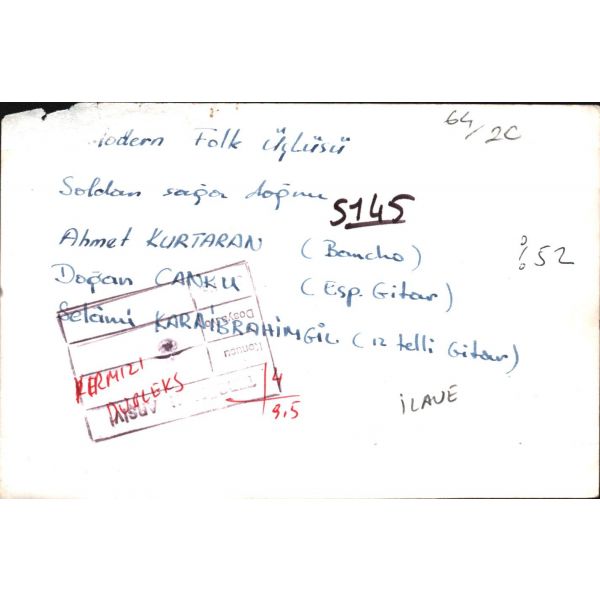 64/2C
Modern Folk Üçlüsü
Soldan sağa doğru
S145
Ahmet KURTARAN (Bancho)
% 52
Doğan CANKU (Esp. Gitar)
Selâmi KARAİBRAHİMGİL (12 telli Gitar)
Dosyası
Konusu
KERMIZI
DUBLEKS
4
9.5
Arşivi
İLAVE